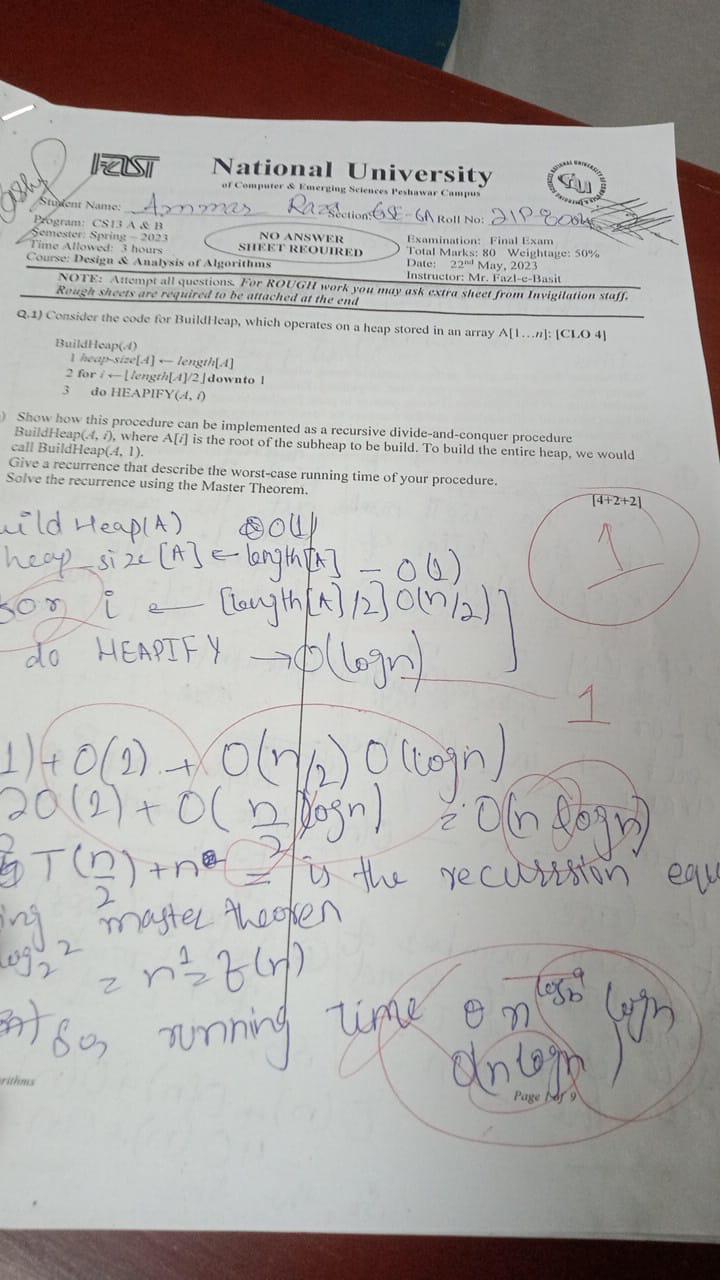 FAST
National University
of Computer & Emerging Sciences Peshawar Campus
Student Name: Ammar Raza Section: GSE-6A Roll No: 21P-8004
Program: CS13 A & B
Semester: Spring – 2023
Time Allowed: 3 hours
Course: Design & Analysis of Algorithms
NO ANSWER
SHEET REQUIRED
Examination: Final Exam
Total Marks: 80 Weightage: 50%
Date: 22nd May, 2023
Instructor: Mr. Fazl-e-Basit
NOTE: Attempt all questions. For ROUGH work you may ask extra sheet from Invigilation staff.
Rough sheets are required to be attached at the end
Q.1) Consider the code for BuildHeap, which operates on a heap stored in an array A[1…n]: [CLO 4]
BuildHeap(A)
1 heap-size[A] ← length[A]
2 for i ← ⌊length[A]/2⌋ downto 1
3 do HEAPIFY(A, i)
) Show how this procedure can be implemented as a recursive divide-and-conquer procedure
BuildHeap(A, i), where A[i] is the root of the subheap to be build. To build the entire heap, we would
call BuildHeap(A, 1).
Give a recurrence that describe the worst-case running time of your procedure.
Solve the recurrence using the Master Theorem.
[4+2+2]
1
uild Heap(A) O(1)
heap_size [A] ← length[A] – O(1)
for i ← [length[A]/2] O(n/2)
do HEAPIFY → O(logn)
1
1) + O(1) + O(n/2) O(logn)
2O(1) + O(n/2 logn) = O(n logn)
T(n/2) + n = is the recurrsion equ
ing master theoren
log2 2 = n^1 = f(n)
So, running time θ n^logb a logn
O(n logn)
rithms
Page 1 of 9